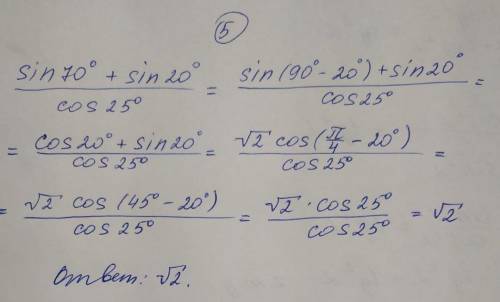 5
(sin 70° + sin 20°) / cos 25° = (sin (90° - 20°) + sin 20°) / cos 25° =
= (cos 20° + sin 20°) / cos 25° = (√2 cos (π/4 - 20°)) / cos 25° =
= (√2 cos (45° - 20°)) / cos 25° = (√2 · cos 25°) / cos 25° = √2
Ответ: √2.